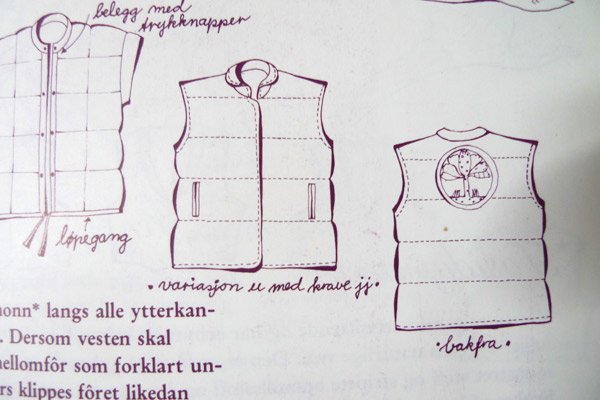 belegg med
trykknapper
løpegang
• variasjon u med krave jj •
• bakfra •
onn* langs alle ytterkan-
. Dersom vesten skal
ellomfôr som forklart un-
rs klippes fôret likedan